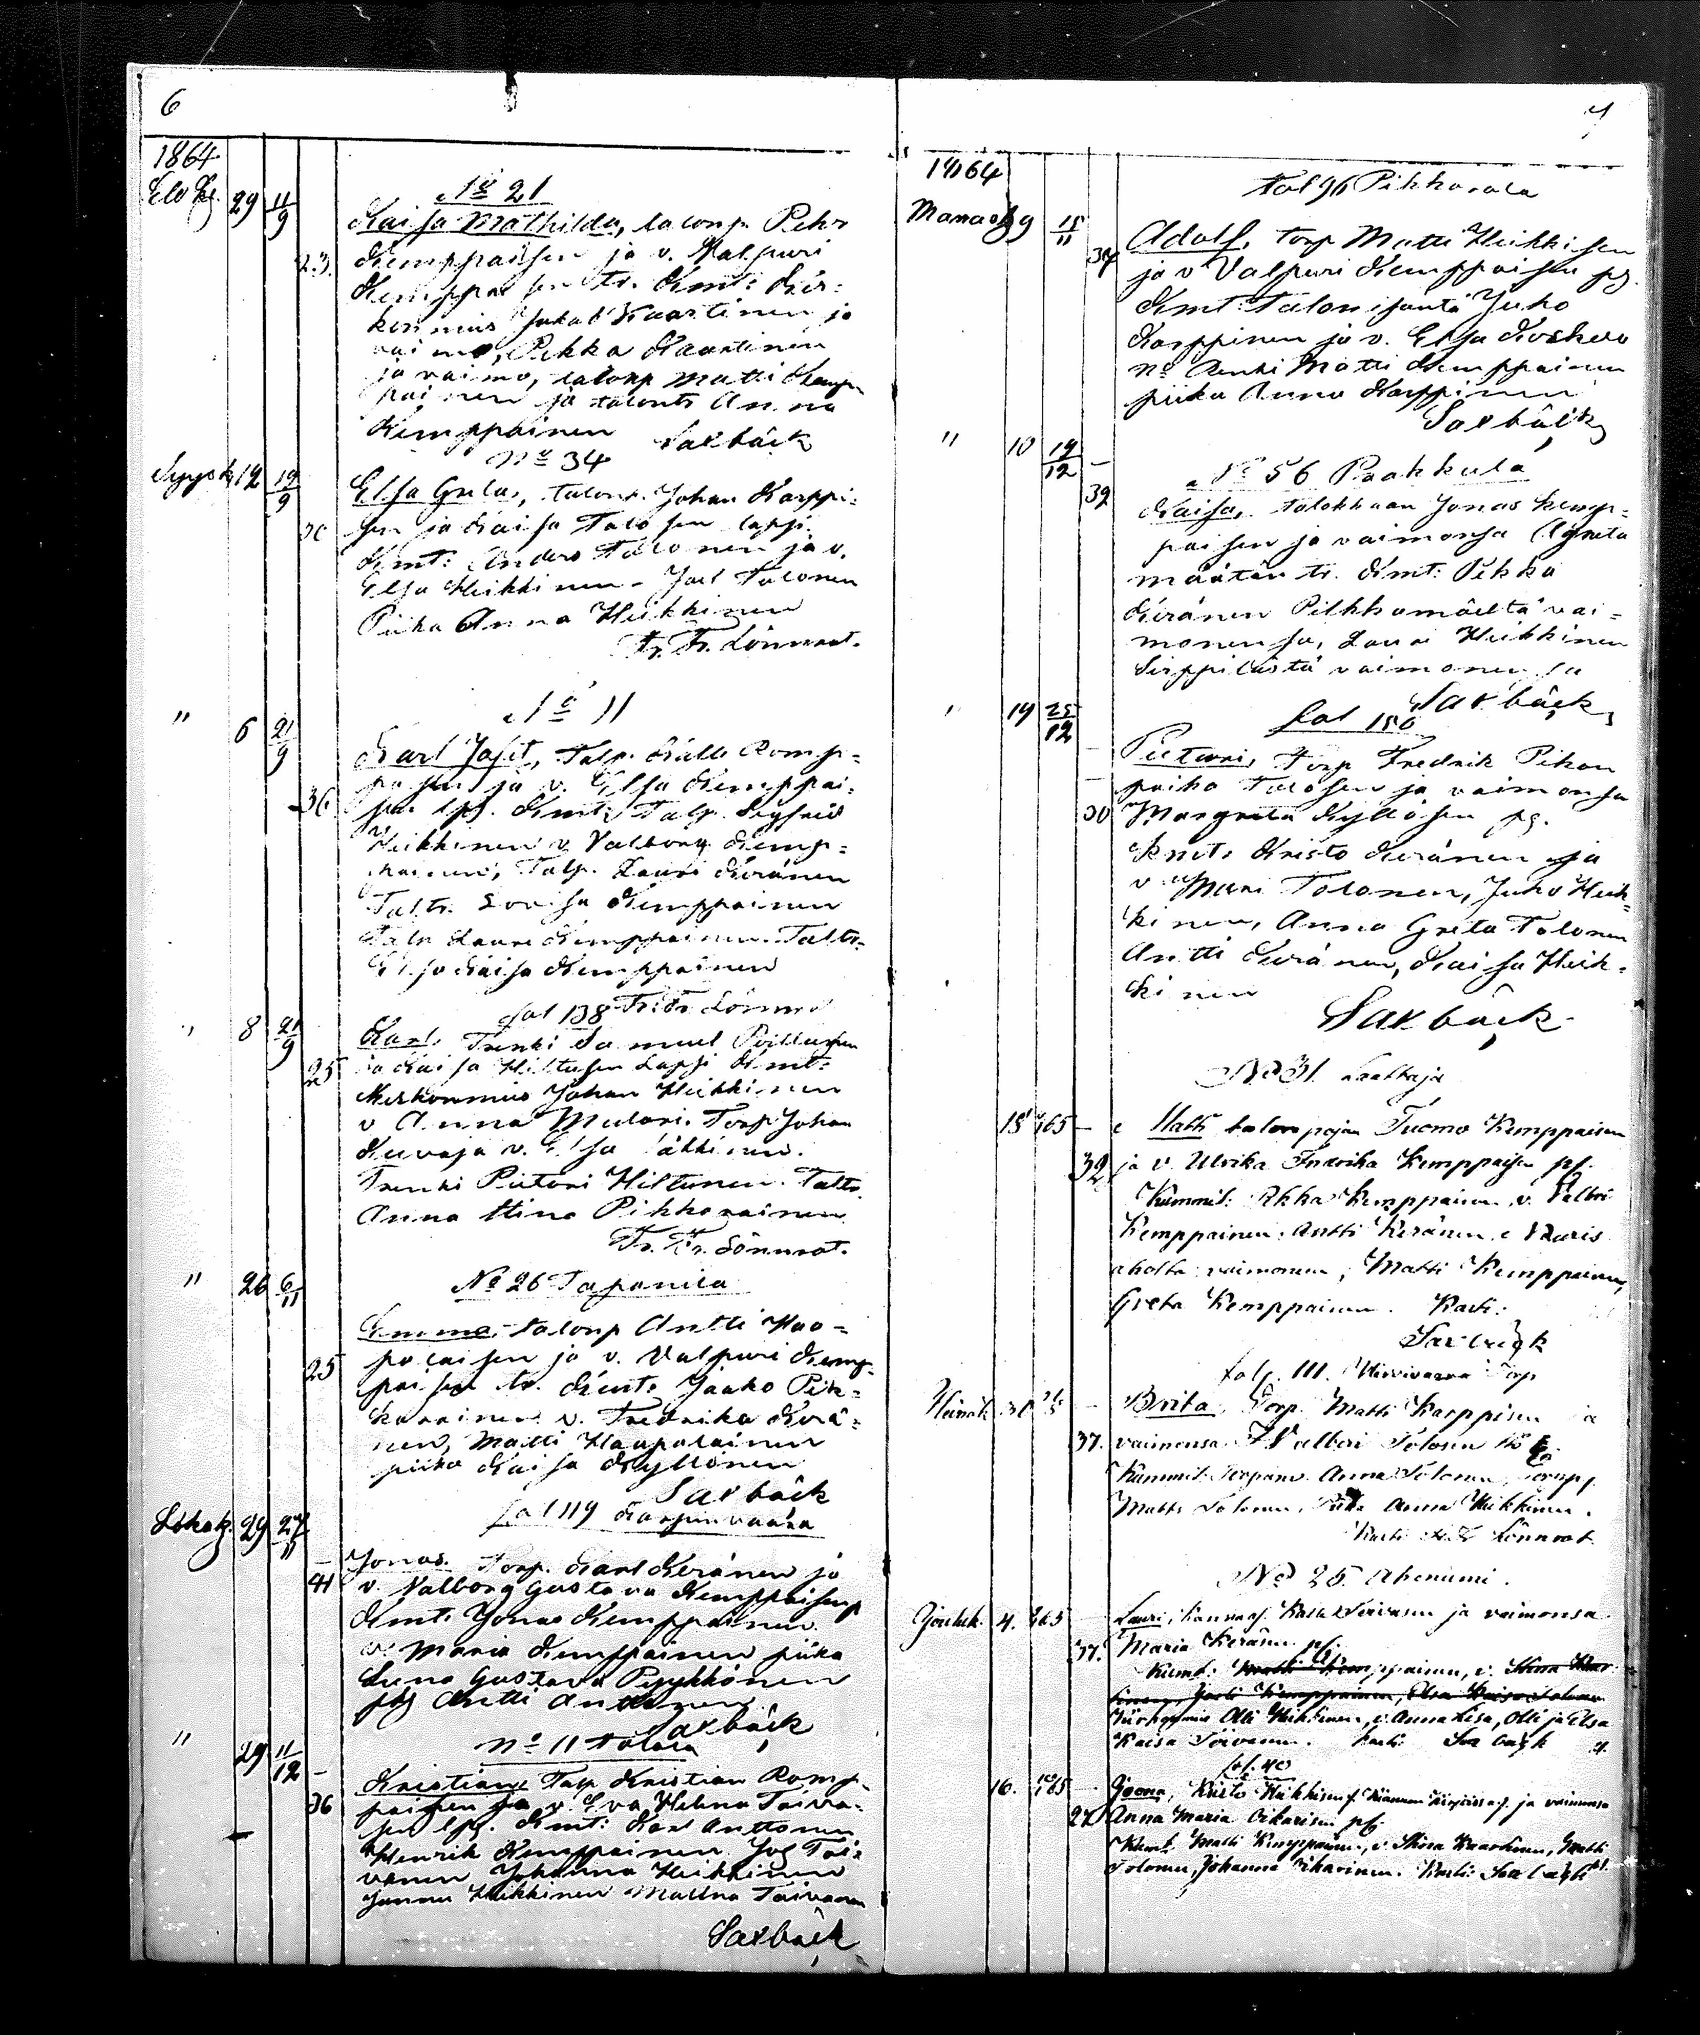 6
1864
Elok. 29 11/9
No 21
Kaisa Mathilda, talonp. Pehr
23. Kemppaisen ja v. Valpuri
Kemppaisen tr. Kmt: Kir:
konmies Juhal Kaartinen ja
vaimo, Pekka Kaartinen
ja vaimo, talonp Matti Kemp
painen ja talontr Anna
Kemppainen Saxbäck
Syysk. 12 19/9
No 34
Elsa Greta, talonp. Johan Karppi-
30 sen ja Kaisa Tolosen lapsi.
Kmt: Anders Tolonen ja v.
Elsa Heikkinen - Joel Tolonen
Piika Anna Heikkinen
Fr. Fr. Lönnrot.
" 6 21/9
No 11
Karl Josit, Talp. Kalle Romp-
paisen ja v. Elsa Kemppai-
36 sen lps. Kmt: Talp. Sigfrid
Heikkinen v. Valborg Kemp-
painen, Talp. Lauri Keränen
Taltr. Lovisa Kemppainen
Talp Lauri Kemppainen. Taltr.
Elsa Kaisa Kemppainen
Fr. Fr. Lönnro
" 8 21/9
fol 138
Karl, Trenki Samuel Piillusen
25 ja Kaisa Hiltusen Lapsi Kmt:
Kirkonmies Johan Heikkinen
v Anna Mulari. Torp Johan
Kuvaja v. Elsa
Trenki Pietari Hiltunen. Taltr
Anna Stina Pikkarainen
Fr. Fr. Lönnrot.
" 26 6/11
No 26 Tapanila
Emma, talonp Antti Haa-
25 polaisen ja v. Valpuri Kemp-
paisen tr. Kmt: Jaako Pik-
karainen v. Fredrika Kerä-
nen, Matti Haapalainen
piika Kaisa Kyllönen
Saxbäck
Lokak. 29 27/11
fol 119 Karpinvaara
Jonas. Torp. Karl Keränen ja
41 v. Valborg Gustava Kemppaisen
Kmt: Jonas Kemppainen
v. Maria Kemppainen piika
Leena Gustava Pyykkönen
Antti Anttonen
Saxbäck
" 29 11/12
No 11 Tolola
Kristian, Talp Kristian Romp-
36 paisen ja v. Eva Helena Toiva-
sen lps. Kmt: Karl Anttonen
Henrik Kemppainen Jos Toi-
vanen Johanna Heikkinen
Jonna Heikkinen Mallna Toivanen
Saxbäck
7
1864
Marrask 9 15/11
fol 96 Pikkarala
Adolf, torp Matti Heikkisen
ja v Valpuri Kemppaisen ps.
Kmt: Talonisäntä Juho
Karppinen ja v. Elsa Koskelo
Renki Matti Kemppainen
piika Anna Karppinen
Saxbäck
" 10 19/12
No 56 Paakkula
39 Kaisa, talokkaan Jonas Kemp-
paisen ja vaimonsa Agneta
Määtän tr. Kmt: Pekka
Keränen Pitkämäeltä vai-
monensa, Lauri Heikkinen
Sirppilästä vaimonensa
Saxbäck
" 19 25/12
fol 150
Pietari, Torp Fredrik Pekan
poika Tolosen ja vaimonsa
30 Margreta Kyllösen ps.
Kmt: Kristo Keränen ja
v Mari Tolonen, Juho Heik-
kinen, Anna Greta Tolonen
Antti Keränen, Kaisa Heik-
kinen
Saxbäck
No 31 Laattaja
15
Matti talonpojan Tuomo Kemppaisen
39 ja v. Ulrika Fredrika Kemppaisen ps.
Kummit: Pekka Kemppainen v. Valbor
Kemppainen. Antti Keränen Vuoris
aholta vaimonen, Matti Kemppainen,
Greta Kemppainen. Kasti:
Saxbäck
folp. 111. Hirvivaara Torp
Heinäk. 31
Brita, Torp. Matti Karppisen ja
37. vaimonsa Valbori Tolosen
Kummit: Torpari Anna Tolonen
Matti Tolonen, Piika Anna Heikkinen.
Kasti F. F. Lönnrot
No 25. Aheniemi.
Jouluk. 4.
Lauri, Toivasen ja vaimonsa
37. Maria Keräsen ps.
Kumt: Matti Kemppainen, v. Stina Kaar
tinen, Matti Kemppainen, Elsa Kaisa Tolonen
Olli Heikkinen, v. Anna Lisa, Olli ja Elsa
Kaisa Toivanen. Kasti Saxbäck
fol. 40
16.
Joona, Kristo Heikkisen ja vaimonsa
27 Anna Maria Oikarisen ps.
Kumt: Matti Kemppainen, v. Stina Kaartinen, Matti
Tolonen, Johanna Oikarinen. Kasti: Saxbäck